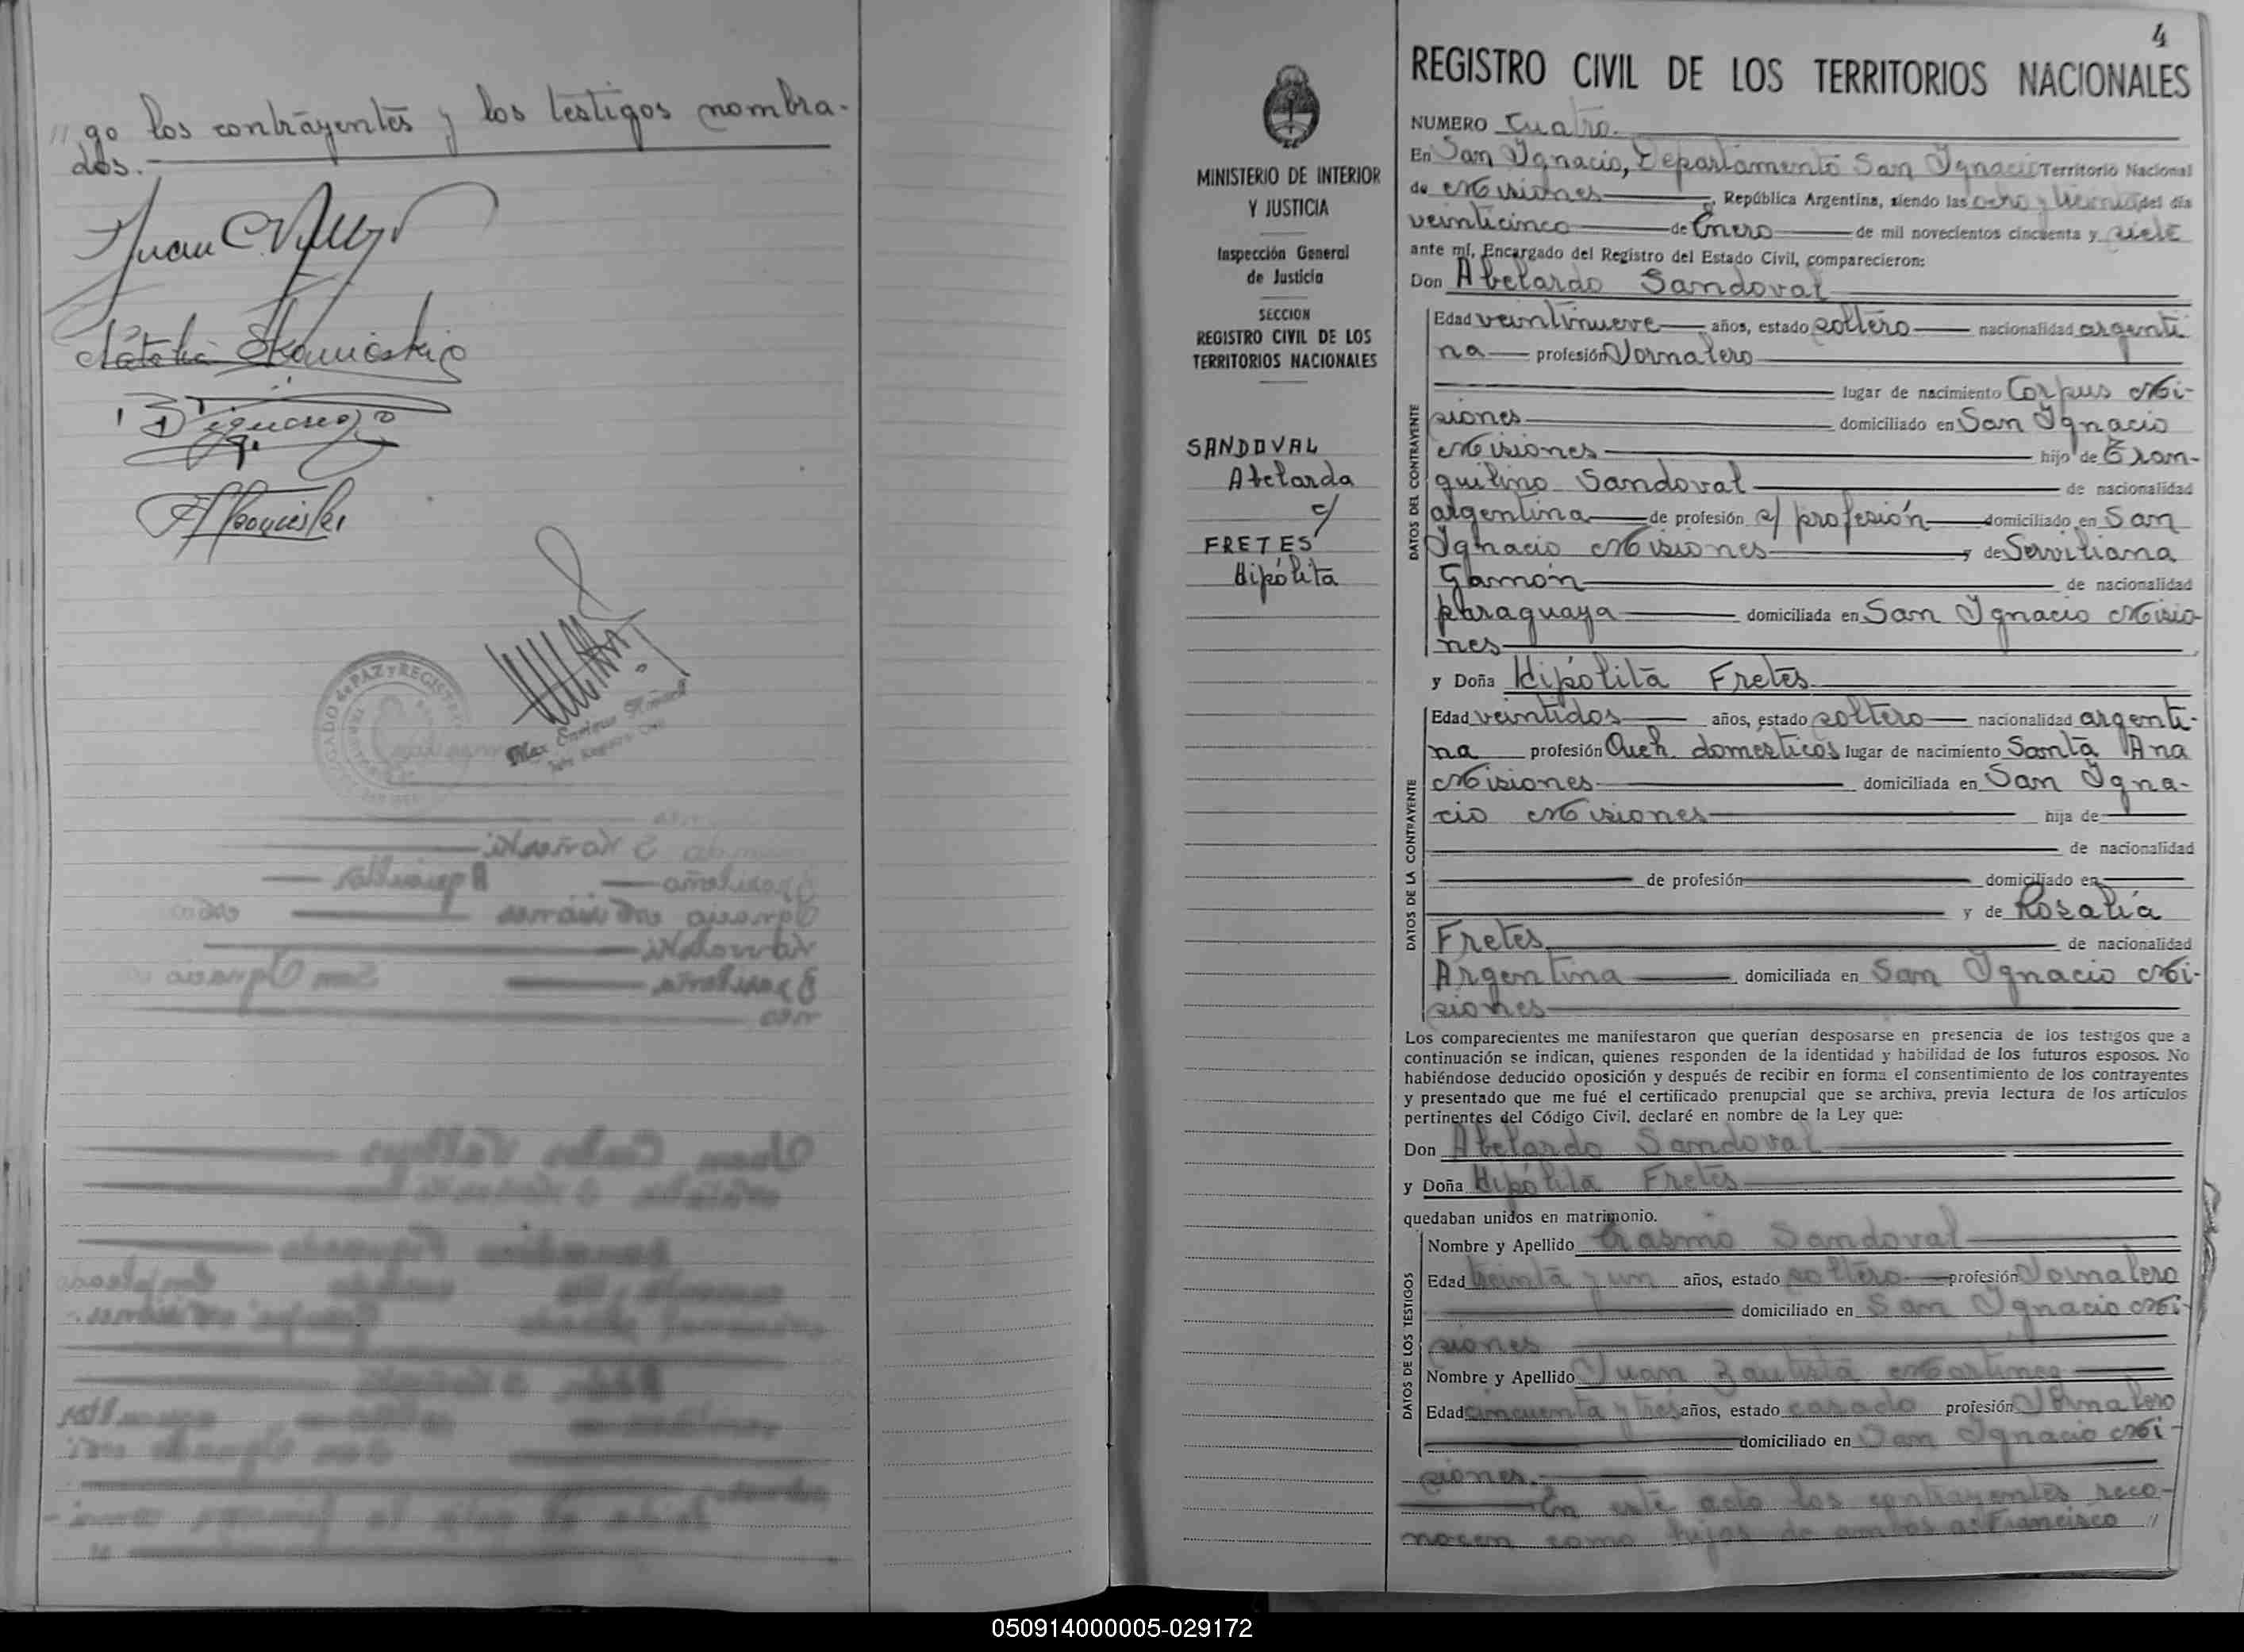 "go los contrayentes y los testigos nombra-
dos.
Max Enrique
4
REGISTRO CIVIL DE LOS TERRITORIOS NACIONALES
MINISTERIO DE INTERIOR
Y JUSTICIA
Inspección General
de Justicia
SECCION
REGISTRO CIVIL DE LOS
TERRITORIOS NACIONALES
SANDOVAL
Abelardo
c/
FRETES
Hipólita
NUMERO Cuatro.
En San Ignacio, Departamento San Ignacio Territorio Nacional
de Misiones, República Argentina, siendo las ocho y treinta del día
veinticinco de Enero de mil novecientos cincuenta y siete
ante mí, Encargado del Registro del Estado Civil, comparecieron:
Don Abelardo Sandoval
DATOS DEL CONTRAYENTE
Edad veintinueve años, estado soltero nacionalidad argenti
na profesión Jornalero
lugar de nacimiento Corpus Mi-
siones domiciliado en San Ignacio
Misiones hijo de Tran-
quilino Sandoval de nacionalidad
argentina de profesión s/ profesión domiciliado en San
Ignacio Misiones y de Serviliana
Gamón de nacionalidad
paraguaya domiciliada en San Ignacio Misio-
nes
y Doña Hipólita Fretes
DATOS DE LA CONTRAYENTE
Edad veintidos años, estado soltero nacionalidad argenti-
na profesión Queh. domesticos lugar de nacimiento Santa Ana
Misiones domiciliada en San Igna-
cio Misiones hija de
de nacionalidad
de profesión domiciliado en
y de Rosalía
Fretes de nacionalidad
Argentina domiciliada en San Ignacio Mi-
siones
Los comparecientes me manifestaron que querían desposarse en presencia de los testigos que a
continuación se indican, quienes responden de la identidad y habilidad de los futuros esposos. No
habiéndose deducido oposición y después de recibir en forma el consentimiento de los contrayentes
y presentado que me fué el certificado prenupcial que se archiva, previa lectura de los artículos
pertinentes del Código Civil, declaré en nombre de la Ley que:
Don Abelardo Sandoval
y Doña Hipólita Fretes
quedaban unidos en matrimonio.
DATOS DE LOS TESTIGOS
Nombre y Apellido Erasmo Sandoval
Edad treinta y un años, estado soltero profesión Jornalero
domiciliado en San Ignacio Mi-
siones
Nombre y Apellido Juan Bautista Martinez
Edad cincuenta y tres años, estado casado profesión Jornalero
domiciliado en San Ignacio Mi-
siones.
En este acto los contrayentes reco-
nocen como hijos de ambos a: Francisco "
050914000005-029172